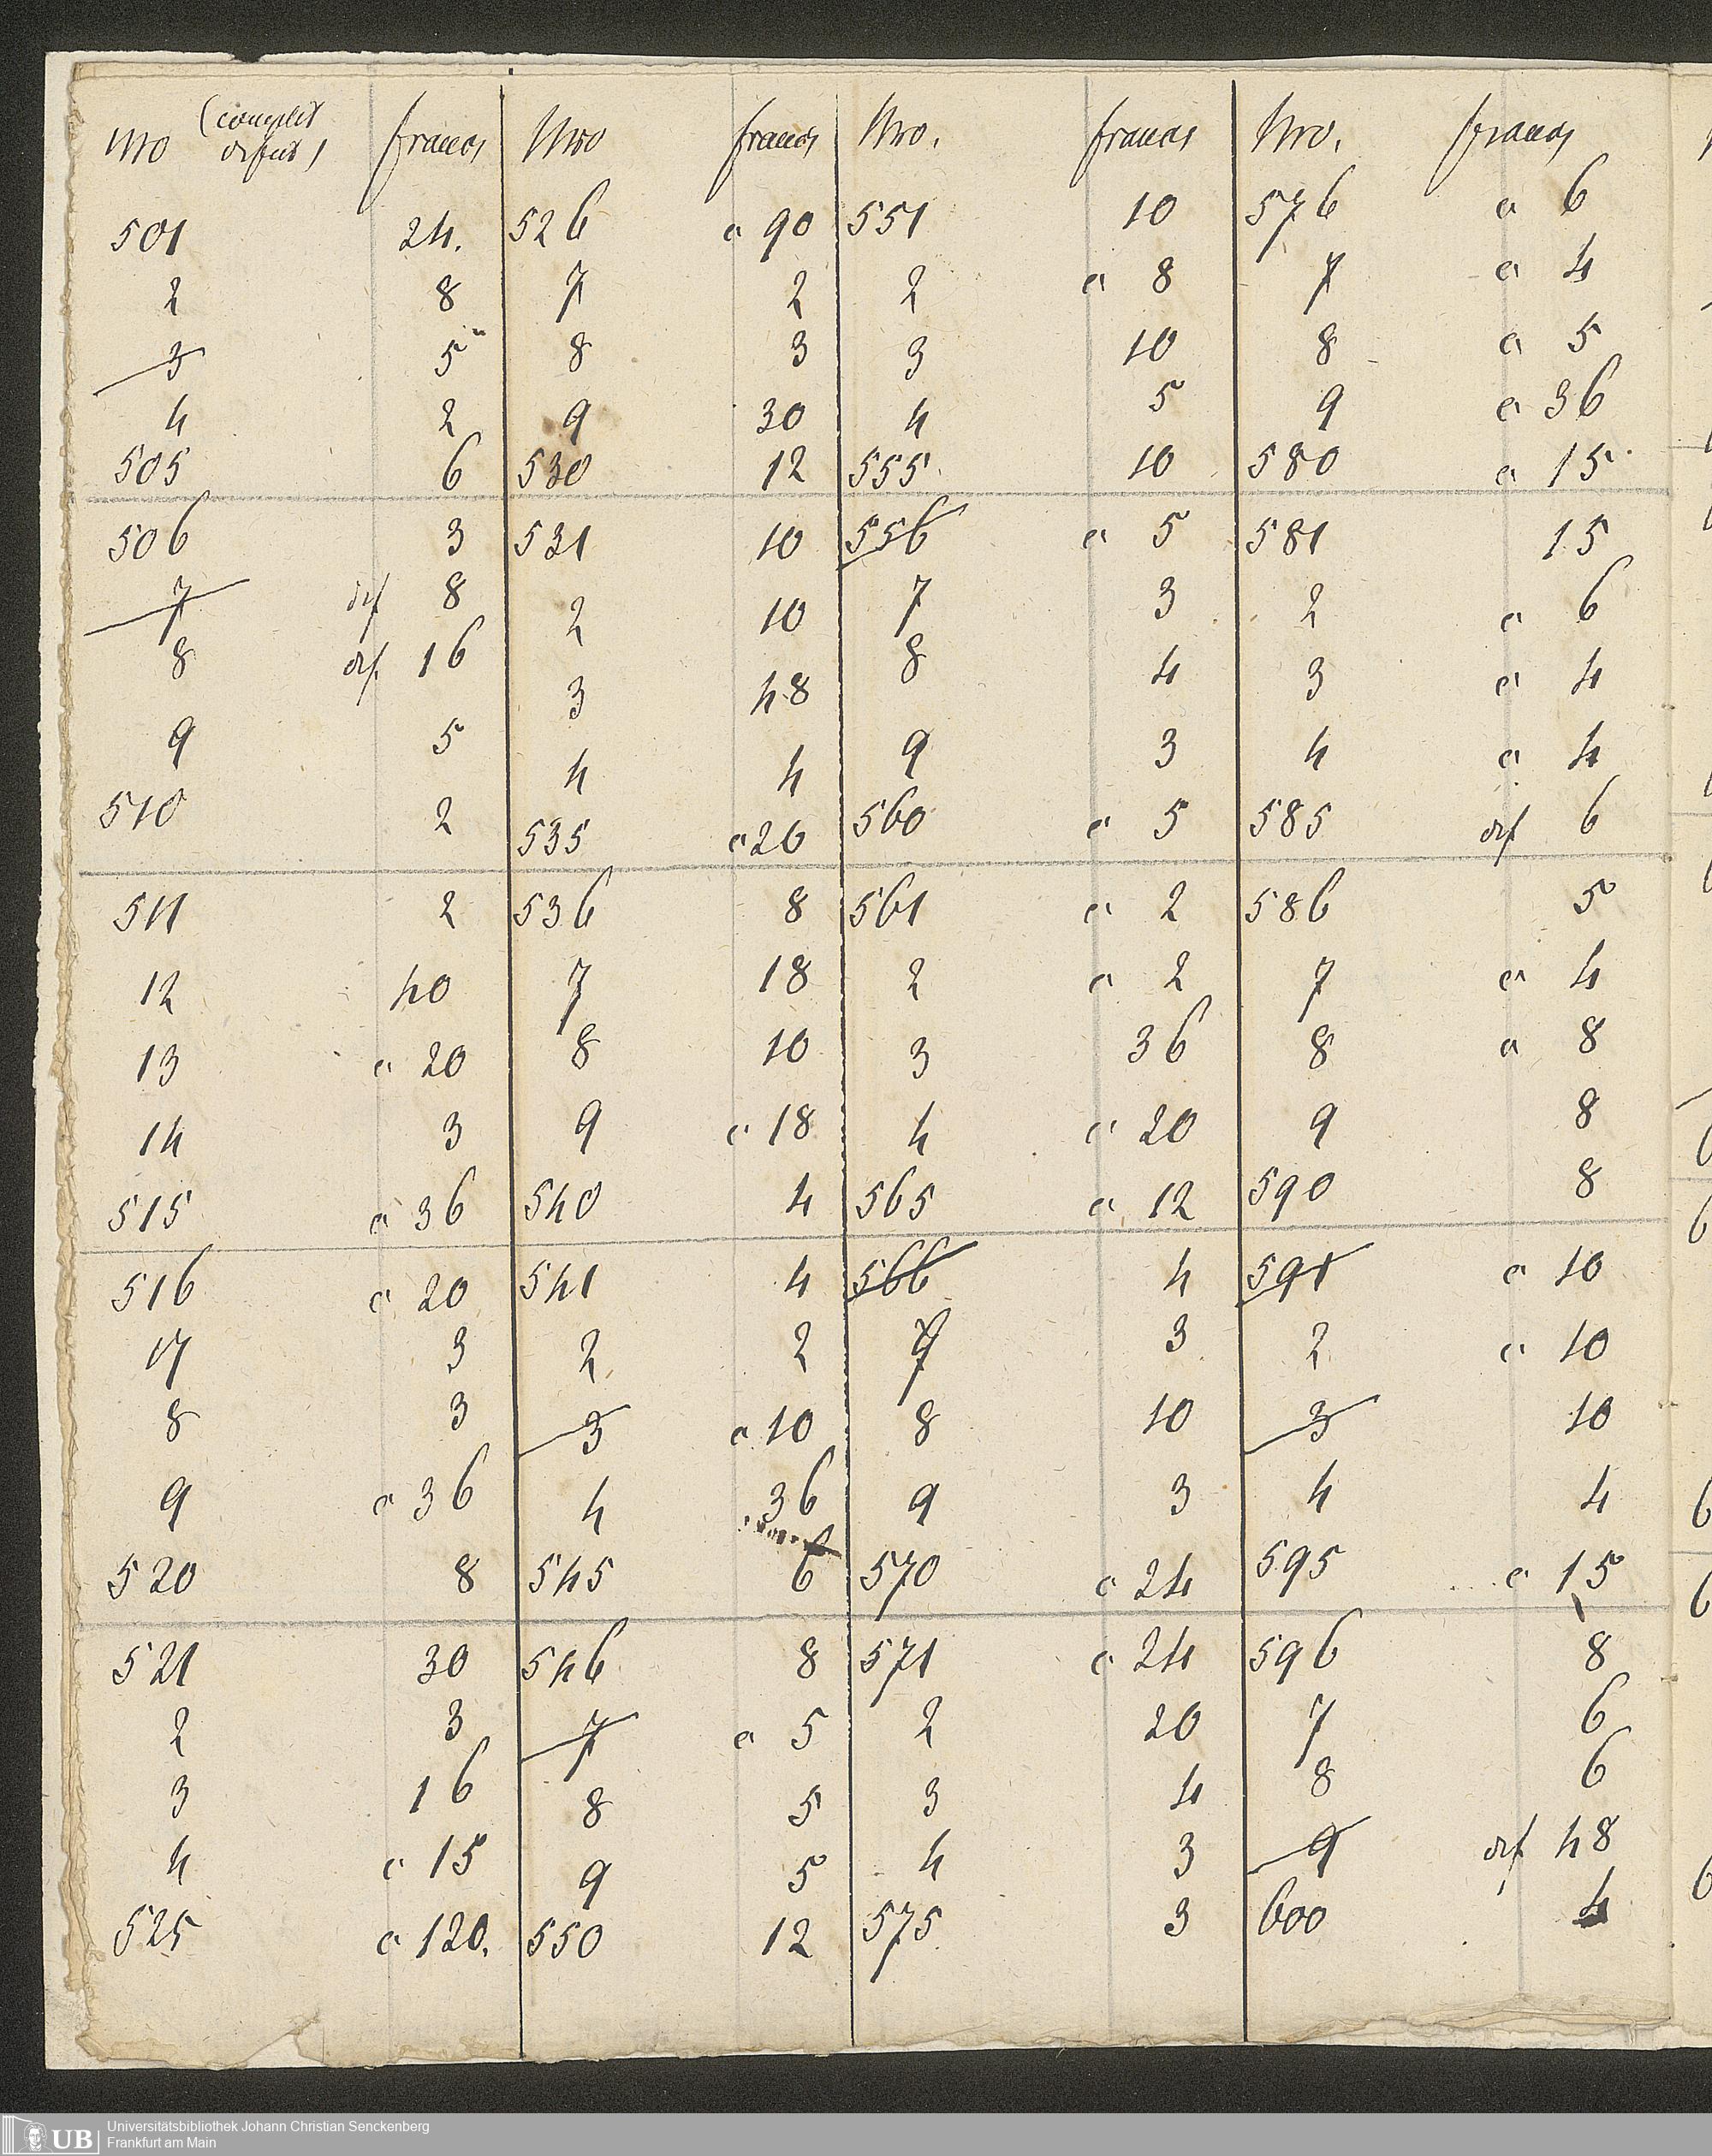 Nro (complet francs Nro francs Nro. francs Nro. francs
defect)
501 24. 526 c 90 551 10 576 c 6
2 8 7 2 2 c 8 7 c 4
3 5 8 3 3 10 8 c 5
4 2 9 30 4 5 9 c 36
505 6 530 12 555 10 580 c 15
506 3 531 10 556 c 5 581 15
7 def 8 2 10 7 3 2 c 6
8 def. 16 3 48 8 4 3 c 4
9 5 4 4 9 3 4 c 4
510 2 535 c 20 560 c 5 585 def 6
511 2 536 8 561 c 2 586 5
12 40 7 18 2 c 2 7 c 4
13 c 20 8 10 3 36 8 c 8
14 3 9 c 18 4 c 20 9 8
515 c 36 540 4 565 c 12 590 8
516 c 20 541 4 566 4 591 c 10
17 3 2 2 7 3 2 c 10
8 3 3 c 10 8 10 3 10
9 c 36 4 36 9 3 4 4
520 8 545 6 570 c 24 595 c 15
521 30 546 8 571 c 24 596 8
2 3 7 c 5 2 20 7 6
3 16 8 5 3 4 8 6
4 c 15 9 5 4 3 9 def 48
525 c 120. 550 12 575 3 600 4
UB Universitätsbibliothek Johann Christian Senckenberg
Frankfurt am Main